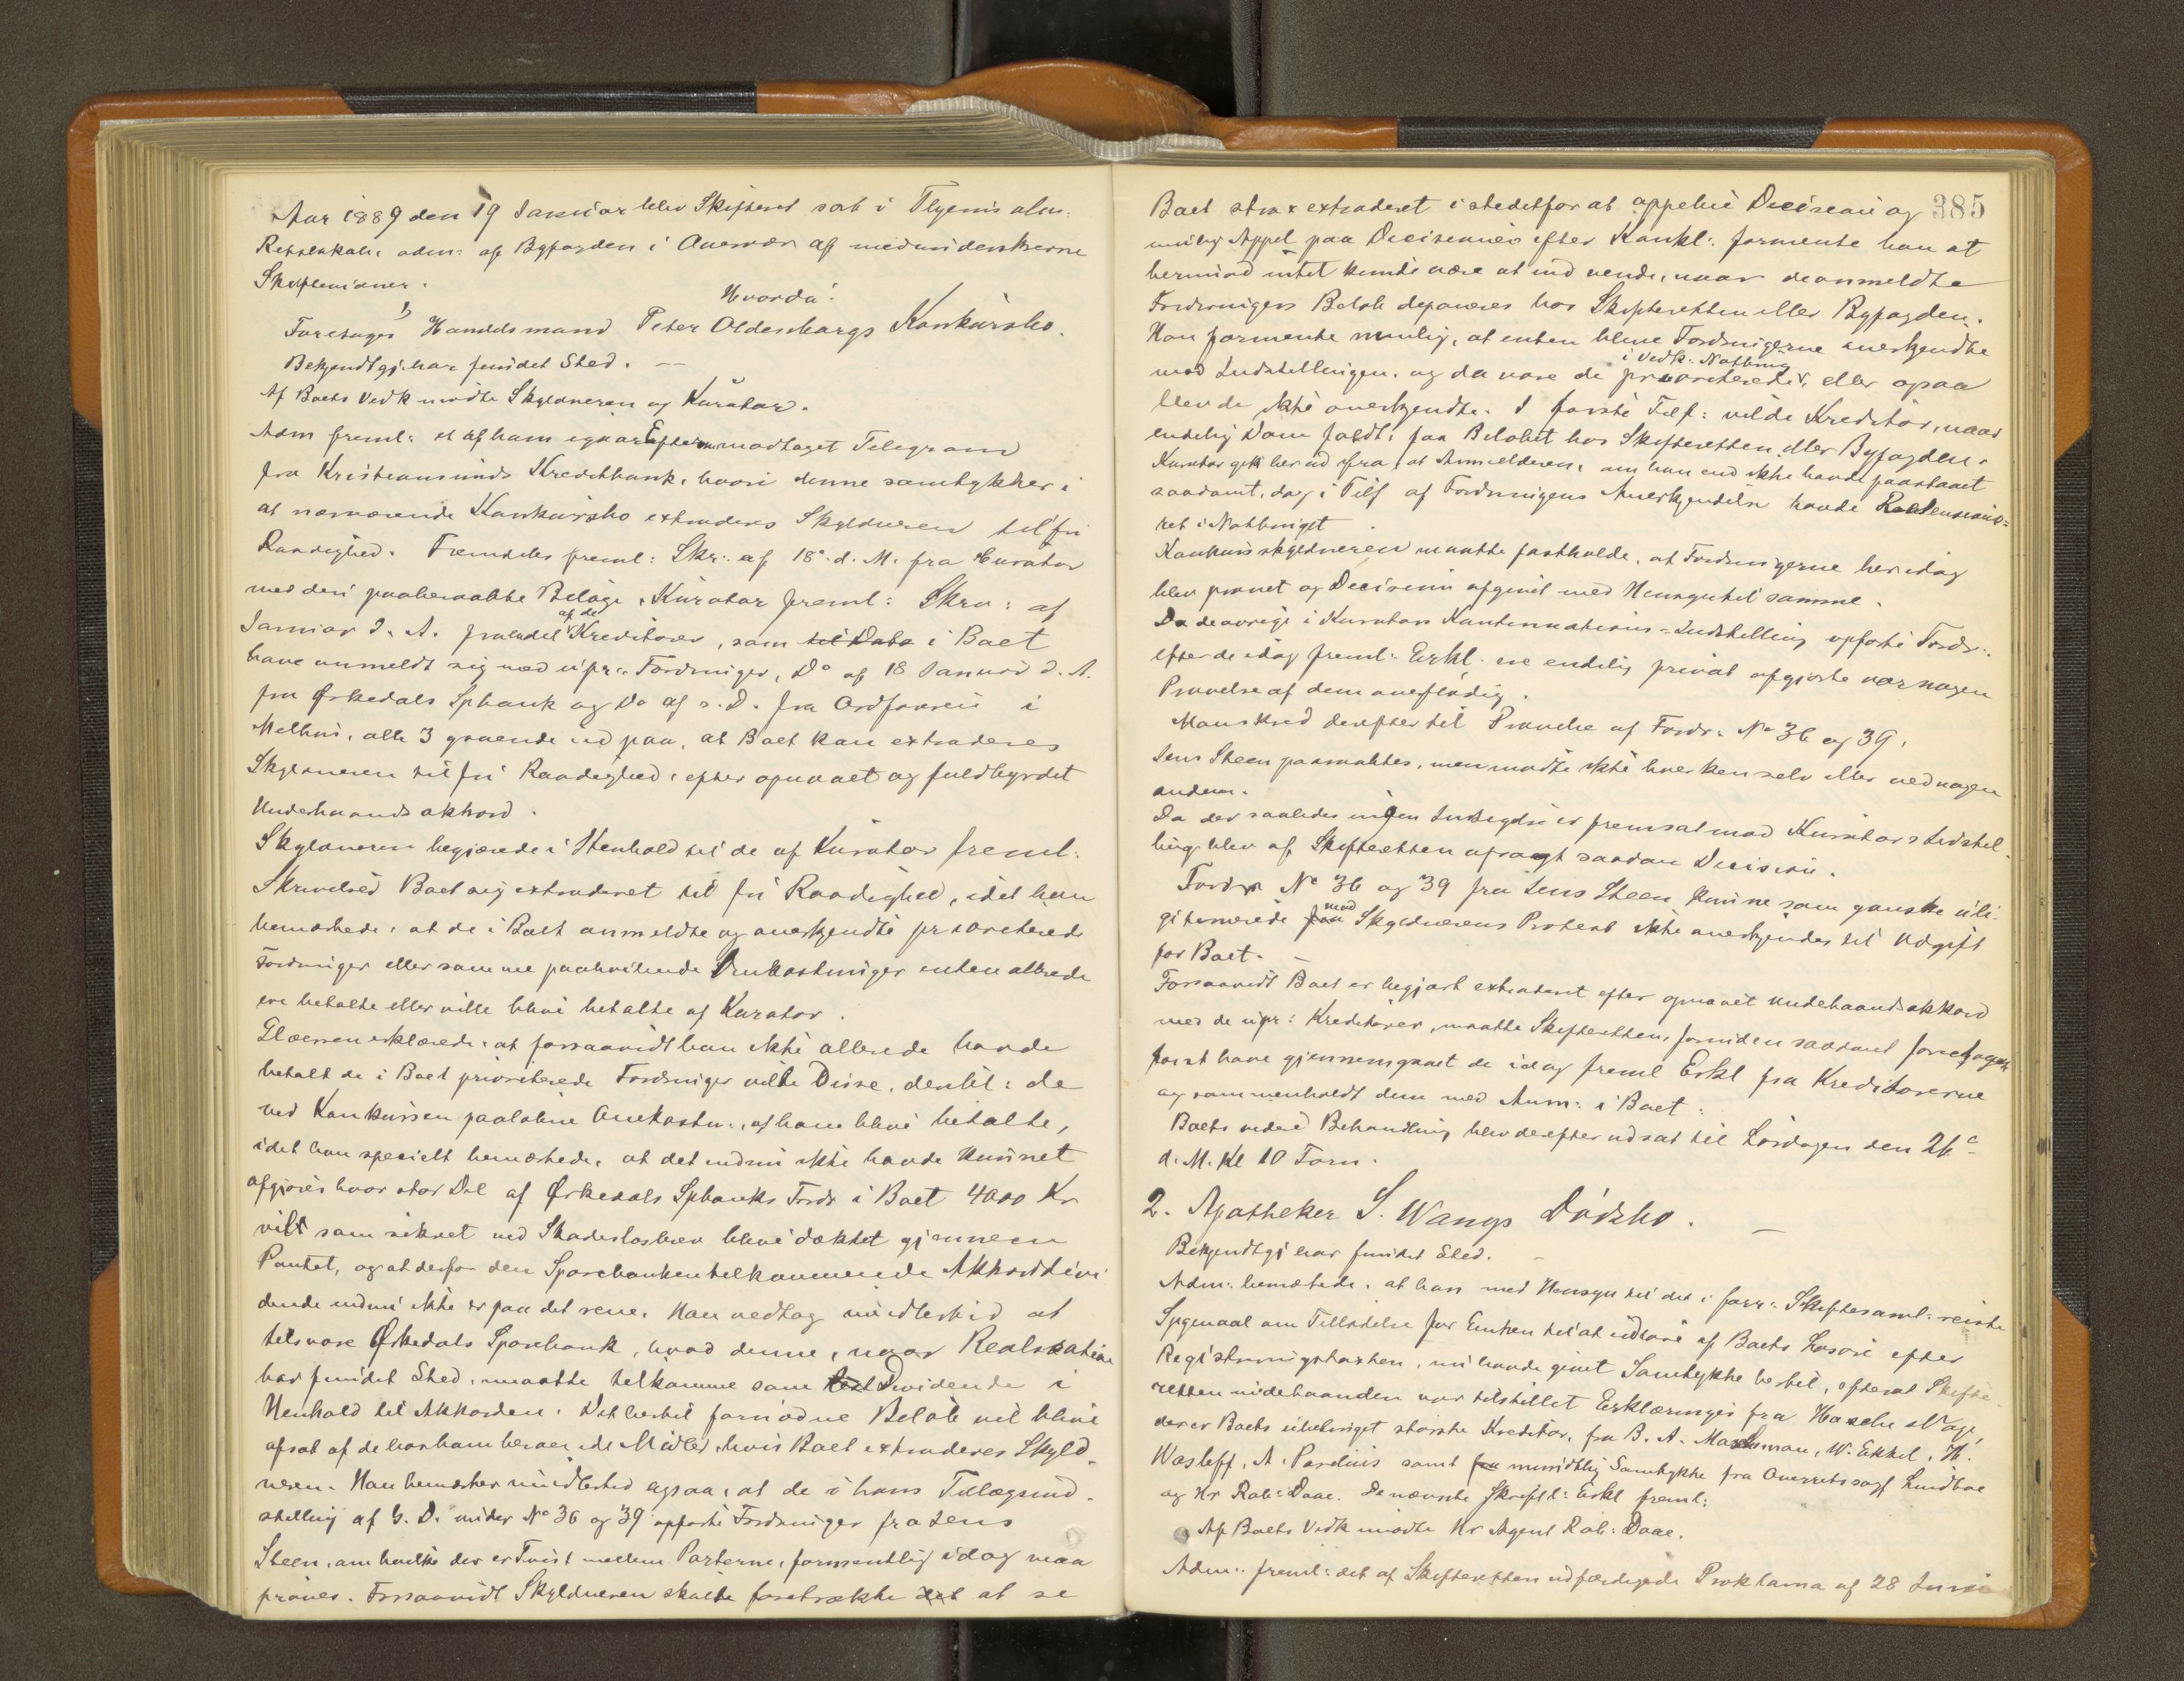 Aar 1889 den 19 Januar blev Skifteret sat i Byens alm:
Retslokale, adm: af Byfogden i Overvær af medunderskrevne
Skiftevidner.
Hvorda:
1) Foretages Handelsmand Peter Oldenborgs Konkursbo.
Bekjendtgj. har fundet Sted. —
Af Boets Vedk mødte Skyldneren og Kurator.
Adm freml: et af ham igaar Efterm modtaget Telegram
fra Kristiansunds Kreditbank, hvori denne samtykker i
at nærværende Konkursbo extraderes Skyldneren til fri
Raadighed. Fremdeles freml: Skr: af 18de d. M. fra Curator
med deri paaberaabte Bilage, Kurator freml: Skrv: af
Januar d. A. fra endel af de Kreditorer, som til Dato i Boet
have anmeldt sig med upr: Fordringer, Do af 18 Januar d. A.
fra Ørkedals Spbank og Do af s. D. fra Ordføreren i
Melhus, alle 3 gaaende ud paa, at Boet kan extraderes
Skyldneren til fri Raadighed, efter opnaaet og fuldbyrdet
Underhaandsakkord.
Skyldneren begjærede i Henhold til de af Kurator freml.
Skrivelser Boet sig extraderet til fri Raadighed, idet han
bemærkede, at de i Boet anmeldte og anerkjendte prioriterede
Fordringer eller samme paahvilende Omkostninger enten allerede
ere betalte eller ville blive betalte af Kurator.
erklærede, at forsaavidt han ikke allerede havde
betalt de i Boet prioriterede Fordringer vilde Disse, dertil: de
ved Konkursen paaløbne Omkostn:, af ham blive betalte,
idet han specielt bemærkede, at det endnu ikke havde kunnet
afgjøres hvor stor Del af Ørkedals Spbanks Fordr i Boet 4000 Kr
vilt som sikret ved Skadesløsbrev blive dækket gjennem
Pantet, og at derfor den Sparebanken tilkommende Akkorddivi
dende endnu ikke er paa det rene. Han vedtog imidlertid at
tilsvare Ørkedals Sparebank, hvad denne, naar Realisation
har fundet Sted, maatte tilkomme som Dividende i
Henhold til Akkorden. Det hertil fornødne Beløb vil blive
afsat af de hos ham beroende Midler, hvis Boet extraderes Skyld
neren. Han bemærker imidlertid ogsaa, at de i hans Tillægsind-
stilling af G. D. under No 36 og 39 opførte Fordringer fra Jens
Steen, om hvilke der er Tvist mellem Parterne, formentlig idag maa
prøves. Forsaavidt Skyldneren skulde foretrække det at se
385
Boet strax extraderet i stedetfor at appellere Decisionen og
mulig Appel paa Decisionens efter Konkl: formente han at
hermed intet kunde være at indvende, naar de anmeldte
Fordringers Beløb deponeres hos Skifteretten eller Byfogden.
Han formente nemlig, at enten bleve Fordringerne anerkjendte
med Indstillingen. og da vare de prioriterede i Vedk: Nothing, eller ogsaa
blev de ikke anerkjendte. I første Tilf: vilde Kreditor, naar
endelig Dom faldt, faa Beløbet hos Skifteretten eller Byfogden.
Kurator gik her ud fra, at Anmelderen, om han end ikke havde paastaaet
saadant, dog i Tilf af Fordringens Anerkjendelse havde Retensions-
ret i Nothinget.
Konkursskyldneren maatte fastholde, at Fordringerne her idag
blev prøvet og Decision afgivet med Hensyn til samme.
Da de øvrige i Kurators Kontinuations-Indstilling opførte Fordr:
efter de idag freml: Erkl. ere endelig privat afgjorte var nogen
Prøvelse af dem overflødig.
Man skred derefter til Prøvelse af Fordr: No 36 og 39.
Jens Steen paaraabtes, men mødte ikke hverken selv eller ved nogen
anden.
Da der saaledes ingen Indsigelse er fremsat mod Kurators Indstil-
ling blev af Skifteretten afsagt saadan Decision.
Fordr No 36 og 39 fra Jens Steen kunne som ganske uli-
gitimerede mod Skyldnerens Protest ikke anerkjendes til Udgift
for Boet.
Forsaavidt Boet er begjært extraderet efter opnaaet underhaandsakkord
med de upr: Kreditorer, maatte Skifteretten, forinden saadant foretages
først have gjennemgaaet de idag freml Erkl fra Kreditorerne
og sammenholdt dem med Anm: i Boet.
Boets videre Behandling blev derefter udsat til Lørdagen den 26de
d. M. Kl 10 Form.
2. Apotheker S. Wangs Dødsbo. —
Bekjendtgj har fundet Sted. —
Adm: bemærkede, at han med Hensyn til det i forr: Skiftesaml: reiste
Spgsmaal om Tilladelse for Enken til at udløse af Boets Løsøre efter
Registreringstaxten, nu havde givet Samtykke hertil, efterat Skifte-
retten underhaanden var tilstillet Erklæringer fra
der er Boets ubetinget største Kreditor, fra B. A. W. Ekkel, H.
Wasleff, A. samt fra mundtlig Samtykke fra Overretssagf Lundboe
og Hr Rob: Daae. De nævnte skriftl: Erkl freml:
Af Boets Vedk mødte Hr Agent Rob: Daae.
Adm: freml: det af Skifteretten udfærdigede Proklama af 28 Juni